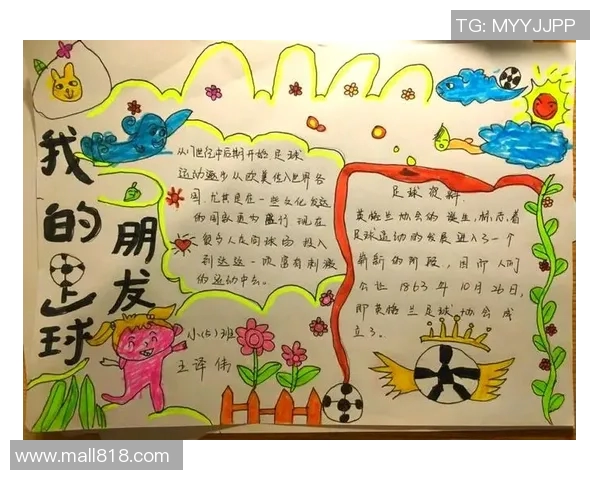 TG: MYYJJPP
我的足球
朋友
从17世纪中后期开始足球
运动逐步从欧美传入世界各
国,尤其是在一些文化发达
的国家更为盛行.现在
很多人在向球场投入
到达这一项富有刺激
的运动中去。
小(5)班
王译伟
足球资料
英格兰协会的诞生,标志着
足球运动的发展进入了一个
崭新的阶段,因而人们
公认1863年10月26日,
即英格兰足球协会成
立了。
www.mall818.com